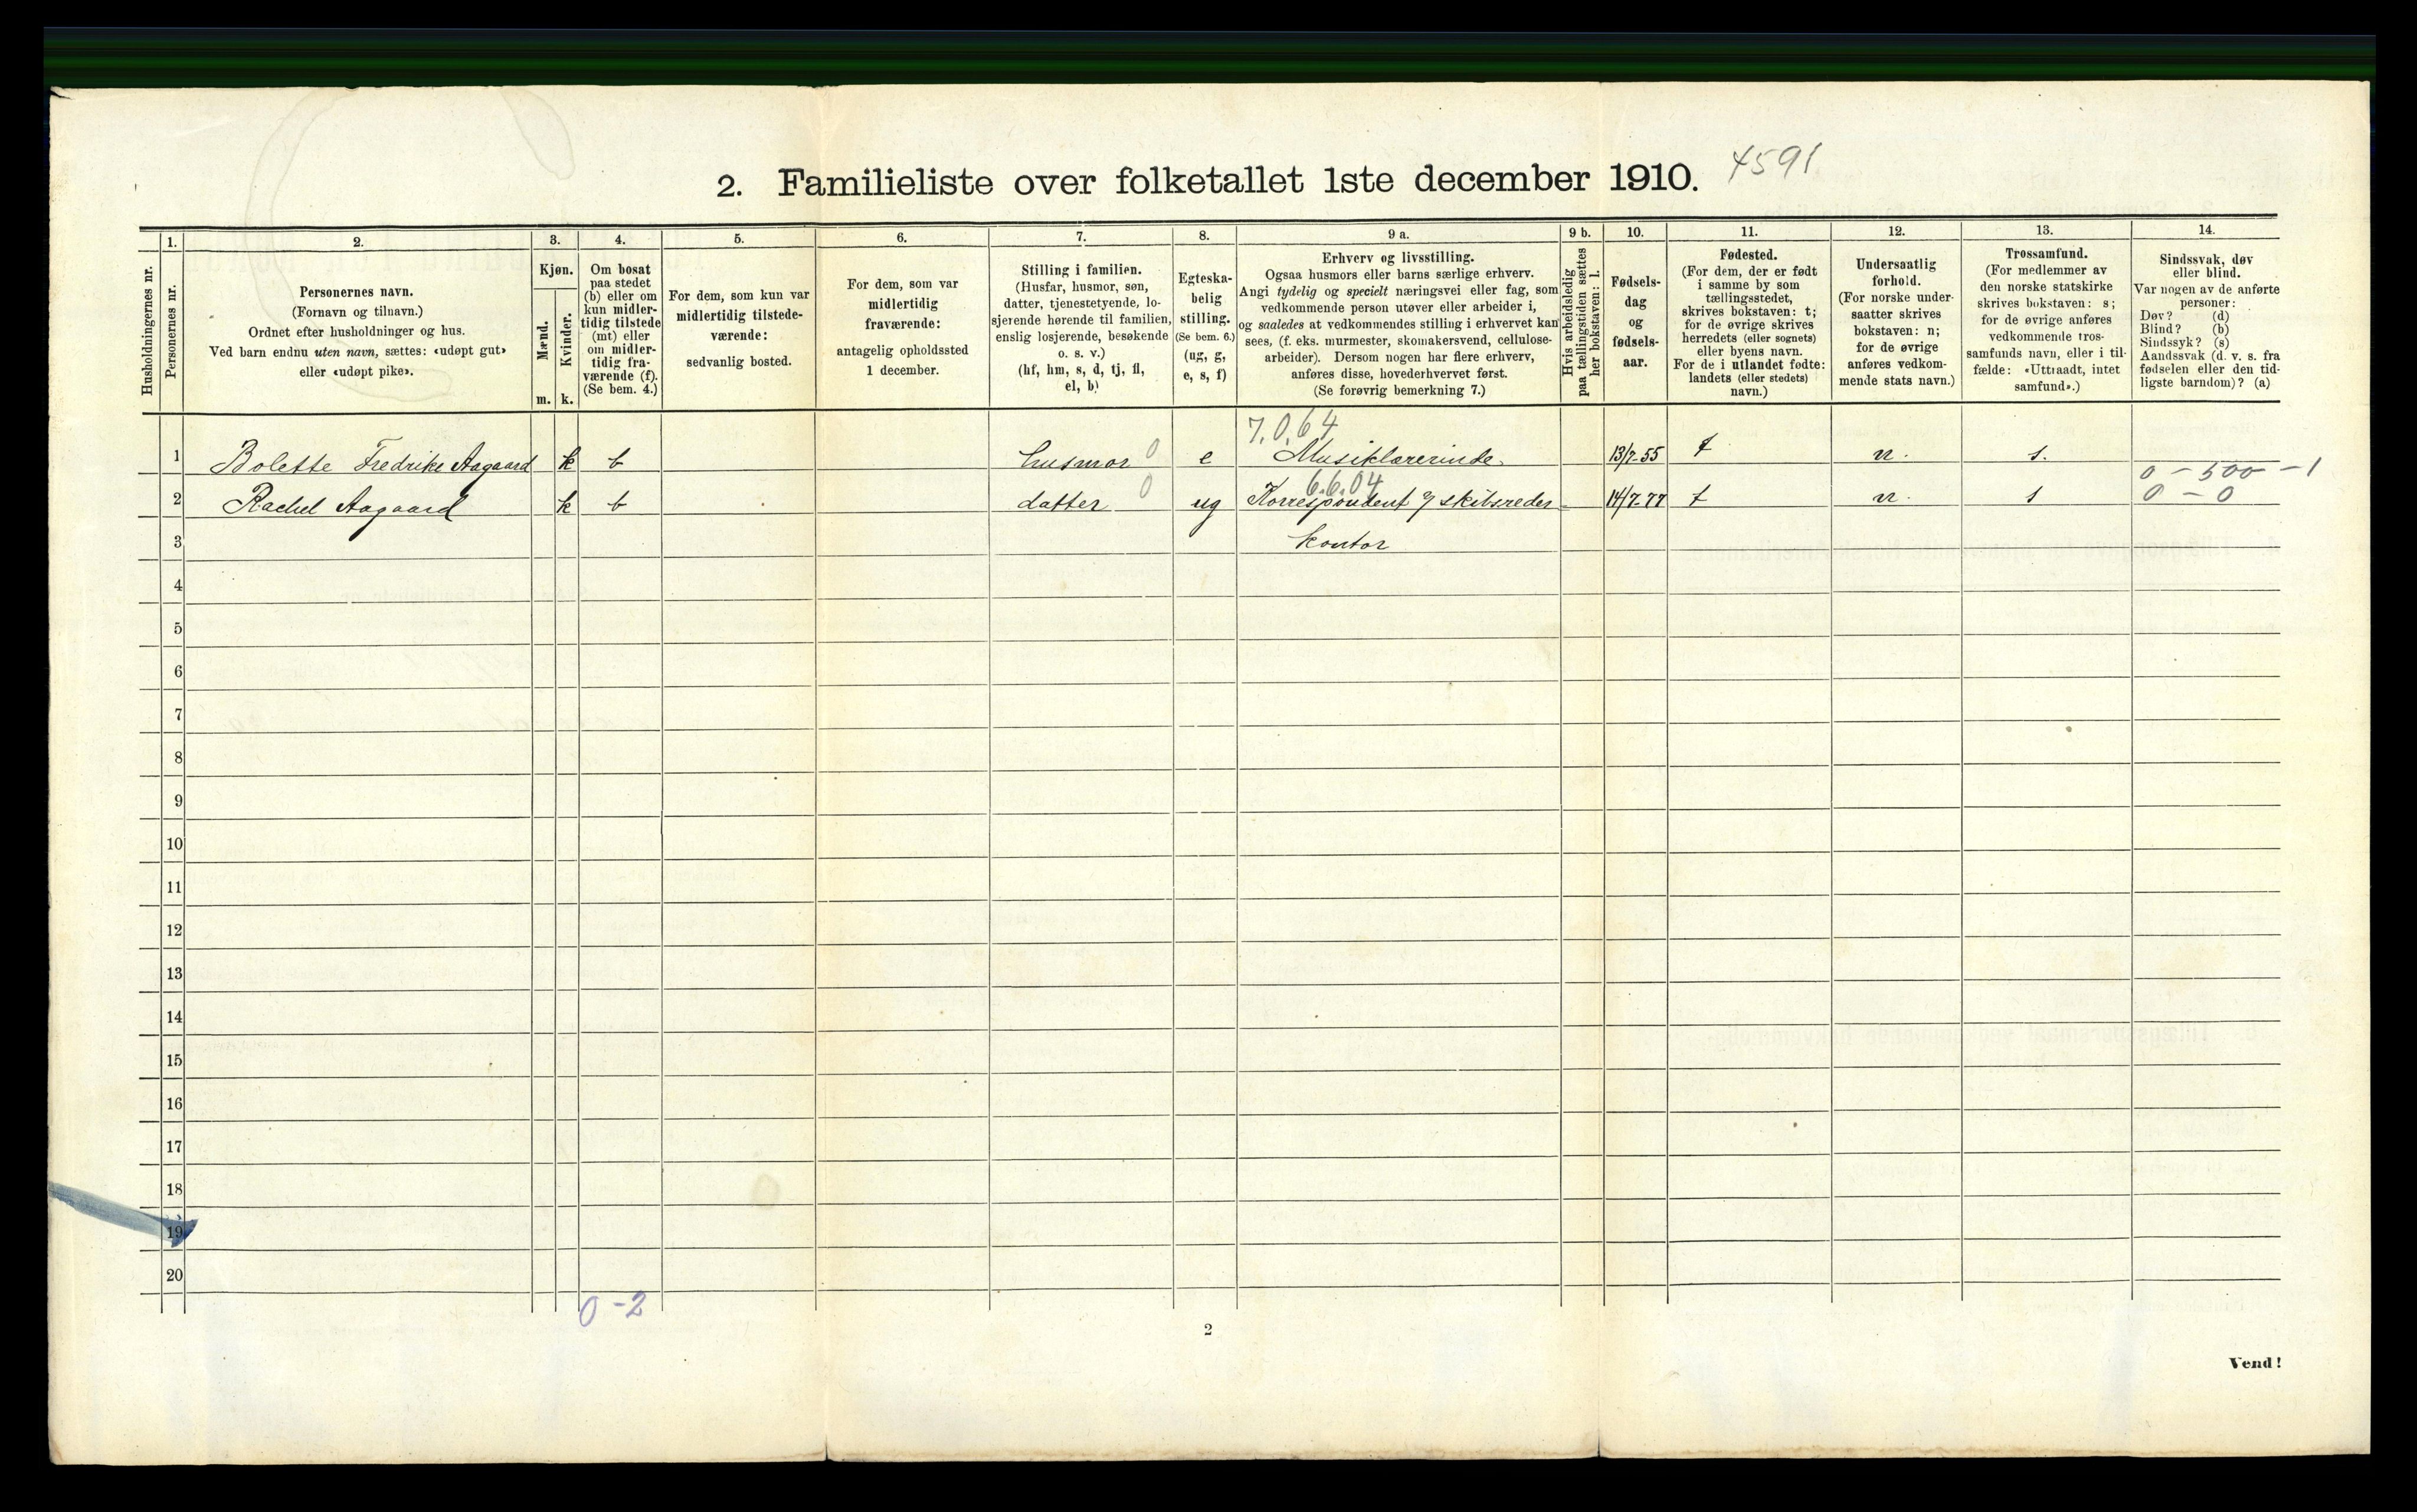 2. Familieliste over folketallet 1ste december 1910. 4591
Husholdningernes nr.
1.
Personernes nr.
2.
Personernes navn.
(Fornavn og tilnavn.)
Ordnet efter husholdninger og hus.
Ved barn endnu uten navn, sættes: «udøpt gut»
eller «udøpt pike».
3.
Kjøn.
Mænd.
Kvinder.
m. k.
4.
Om bosat
paa stedet
(b) eller om
kun midler-
tidig tilstede
(mt) eller
om midler-
tidig fra-
værende (f).
(Se bem. 4.)
5.
For dem, som kun var
midlertidig tilstede-
værende:
sedvanlig bosted.
6.
For dem, som var
midlertidig
fraværende:
antagelig opholdssted
1 december.
7.
Stilling i familien.
(Husfar, husmor, søn,
datter, tjenestetyende, lo-
sjerende hørende til familien,
enslig losjerende, besøkende
o. s. v.)
(hf, hm, s, d, tj, fl,
el, b)
8.
Egteska-
belig
stilling.
(Se bem. 6.)
(ug, g,
e, s, f)
9 a.
Erhverv og livsstilling.
Ogsaa husmors eller barns særlige erhverv.
Angi tydelig og specielt næringsvei eller fag, som
vedkommende person utøver eller arbeider i,
og saaledes at vedkommendes stilling i erhvervet kan
sees, (f. eks. murmester, skomakersvend, cellulose-
arbeider). Dersom nogen har flere erhverv,
anføres disse, hovederhvervet først.
(Se forøvrig bemerkning 7.)
9 b.
Hvis arbeidsledig
paa tællingstiden sættes
her bokstaven: l.
10.
Fødsels-
dag
og
fødsels-
aar.
11.
Fødested.
(For dem, der er født
i samme by som
tællingsstedet,
skrives bokstaven: t;
for de øvrige skrives
herredets (eller sognets)
eller byens navn.
For de i utlandet fødte:
landets (eller stedets)
navn.)
12.
Undersaatlig
forhold.
(For norske under-
saatter skrives
bokstaven: n;
for de øvrige
anføres vedkom-
mende stats navn.)
13.
Trossamfund.
(For medlemmer av
den norske statskirke
skrives bokstaven: s;
for de øvrige anføres
vedkommende tros-
samfunds navn, eller i til-
fælde: «Uttraadt, intet
samfund».)
14.
Sindssvak, døv
eller blind.
Var nogen av de anførte
personer:
Døv? (d)
Blind? (b)
Sindssyk? (s)
Aandssvak (d. v. s. fra
fødselen eller den tid-
ligste barndom)? (a)
7.0.64
1 Bolette Fredrike Aagaard k b husmor 0 e Musiklærerinde 13/7-55 t n. s.
0 - 500 - 1
6.6.04
2 Rachel Aagaard k b datter 0 ug Korrespondent på skibsreder 14/7-77 t n. s 0 - 0
3 kontor
4
5
6
7
8
9
10
11
12
13
14
15
16
17
18
19
20
0 - 2
2
Vend!